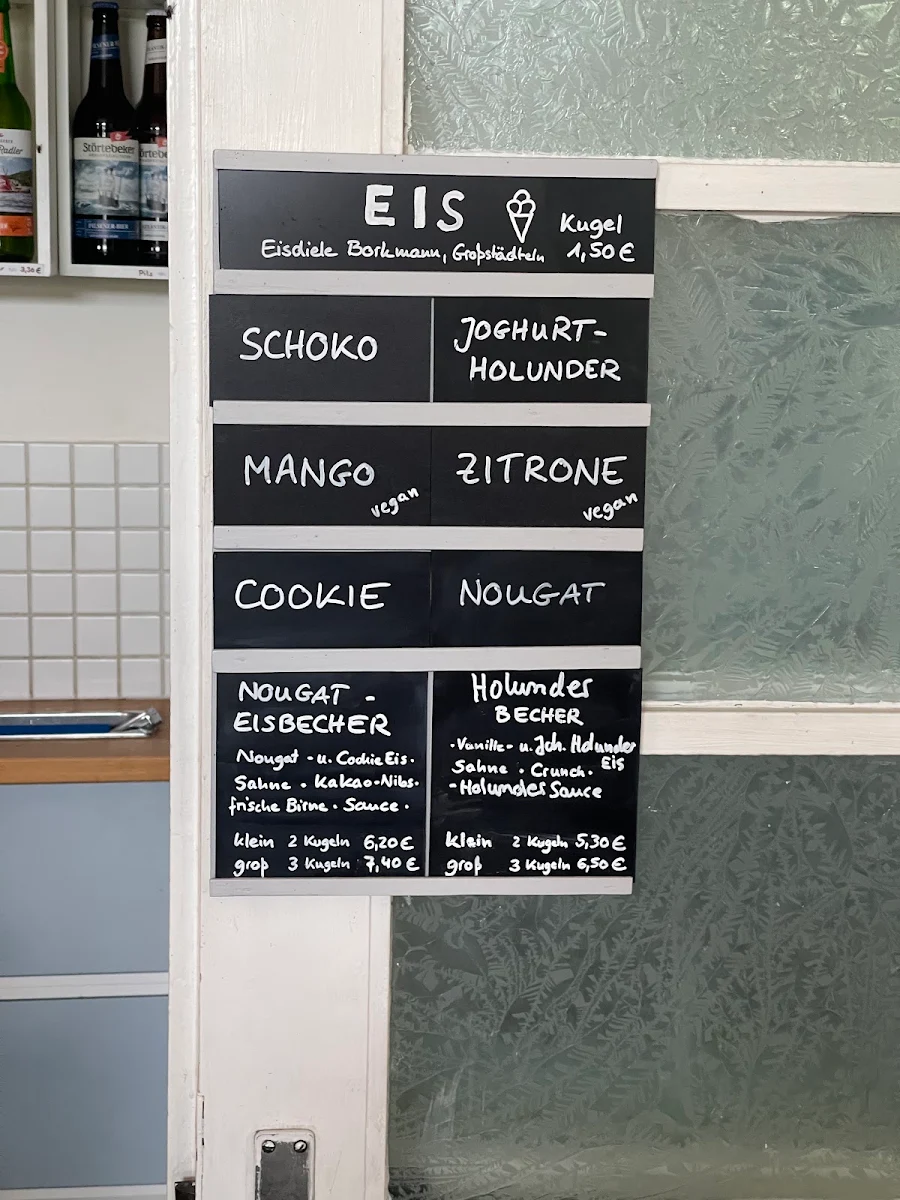 Radler
Störtebeker
PILSENER-BIER
3,30 €
Pils
EIS
Kugel
Eisdiele Borkmann, Großstädteln 1,50 €
SCHOKO
JOGHURT-
HOLUNDER
MANGO
vegan
ZITRONE
vegan
COOKIE
NOUGAT
NOUGAT -
EISBECHER
Nougat - u. Cookie Eis.
Sahne . Kakao-Nibs.
frische Birne . Sauce .
klein 2 Kugeln 6,20 €
groß 3 Kugeln 7,40 €
Holunder
BECHER
-Vanille- u. Joh. Holunder
Sahne . Crunch . Eis
-Holunder Sauce
klein 2 Kugeln 5,30 €
groß 3 Kugeln 6,50 €